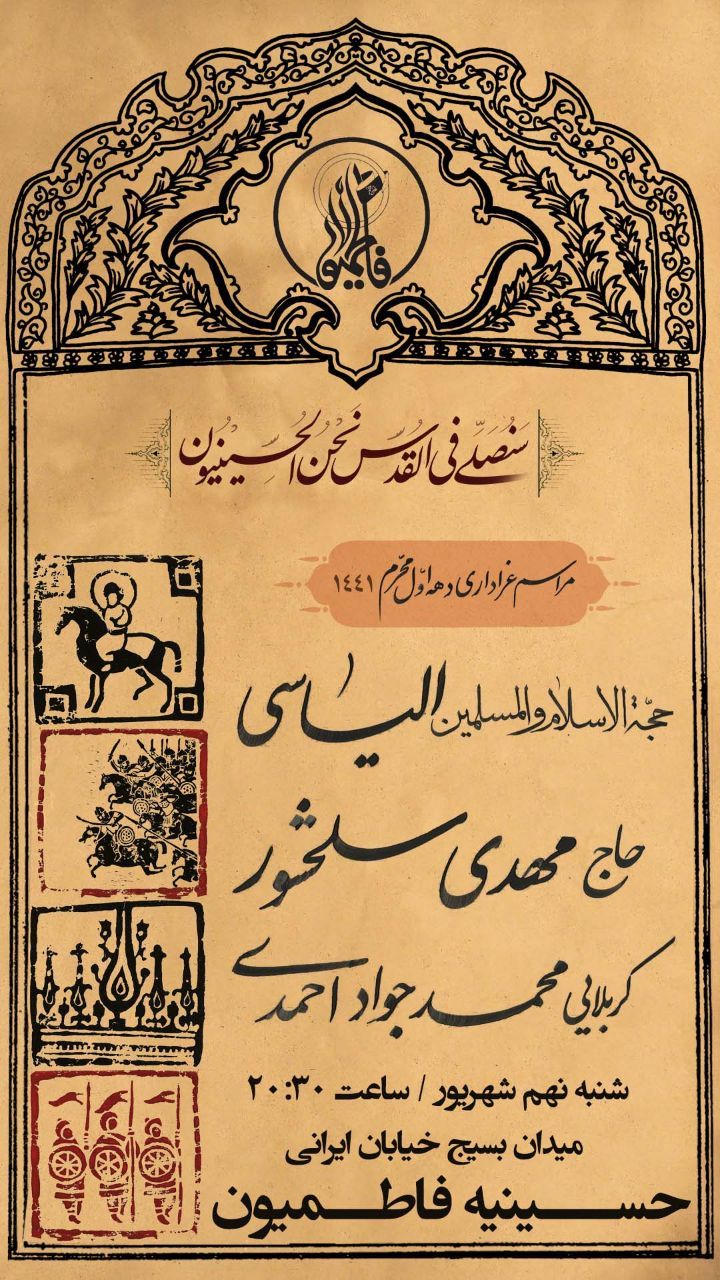 فاطمیون
سَنُصَلّي في القُدس نَحْنُ الحُسِينيُّون
مراسم عزاداری دهه اوّل محرّم ۱۴۴۱
حجّة الاسلام والمسلمین الیاسی
حاج مهدی سلحشور
کربلایی محمدجواد احمدی
شنبه نهم شهریور / ساعت ۲۰:۳۰
میدان بسیج خیابان ایرانی
حسینیه فاطمیون